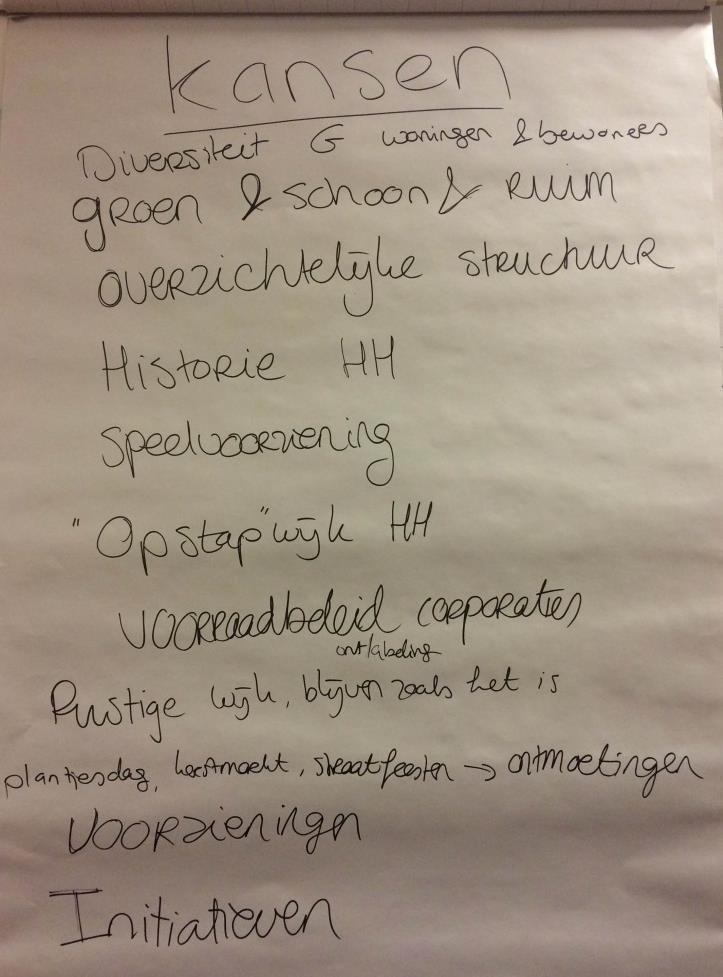 Kansen
Diversiteit G woningen & bewoners
groen & schoon & Ruim
overzichtelijke structuur
Historie HH
speelvoorziening
"Opstap" wijk HH
voorraadbeleid corporaties
ontlabeling
Rustige wijk, blijven zoals het is
plantjesdag, kerstmarkt, straatfeesten → ontmoetingen
Voorzieningen
Initiatieven